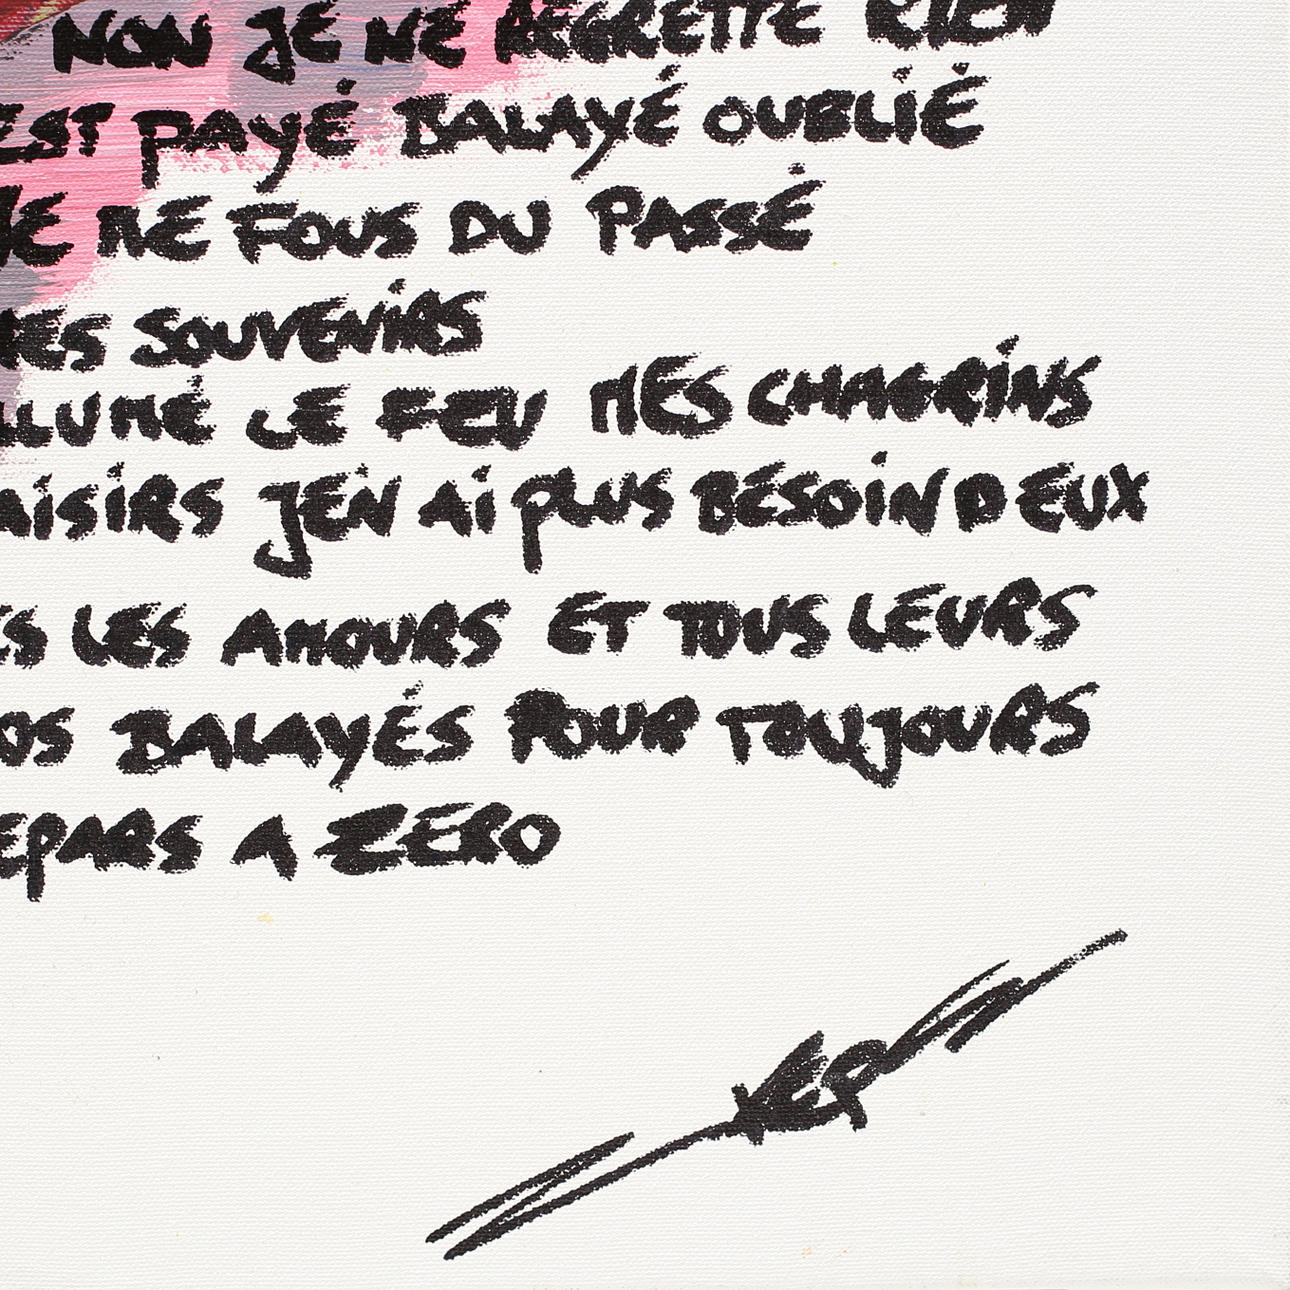 NON JE NE REGRETTE RIEN
EST PAYÉ BALAYÉ OUBLIÉ
JE ME FOUS DU PASSÉ
MES SOUVENIRS
LLUMÉ LE FEU MES CHAGRINS
AISIRS JEN AI PLUS BESOIN D EUX
ES LES AMOURS ET TOUS LEURS
OS BALAYÉS POUR TOUJOURS
EPARS A ZERO